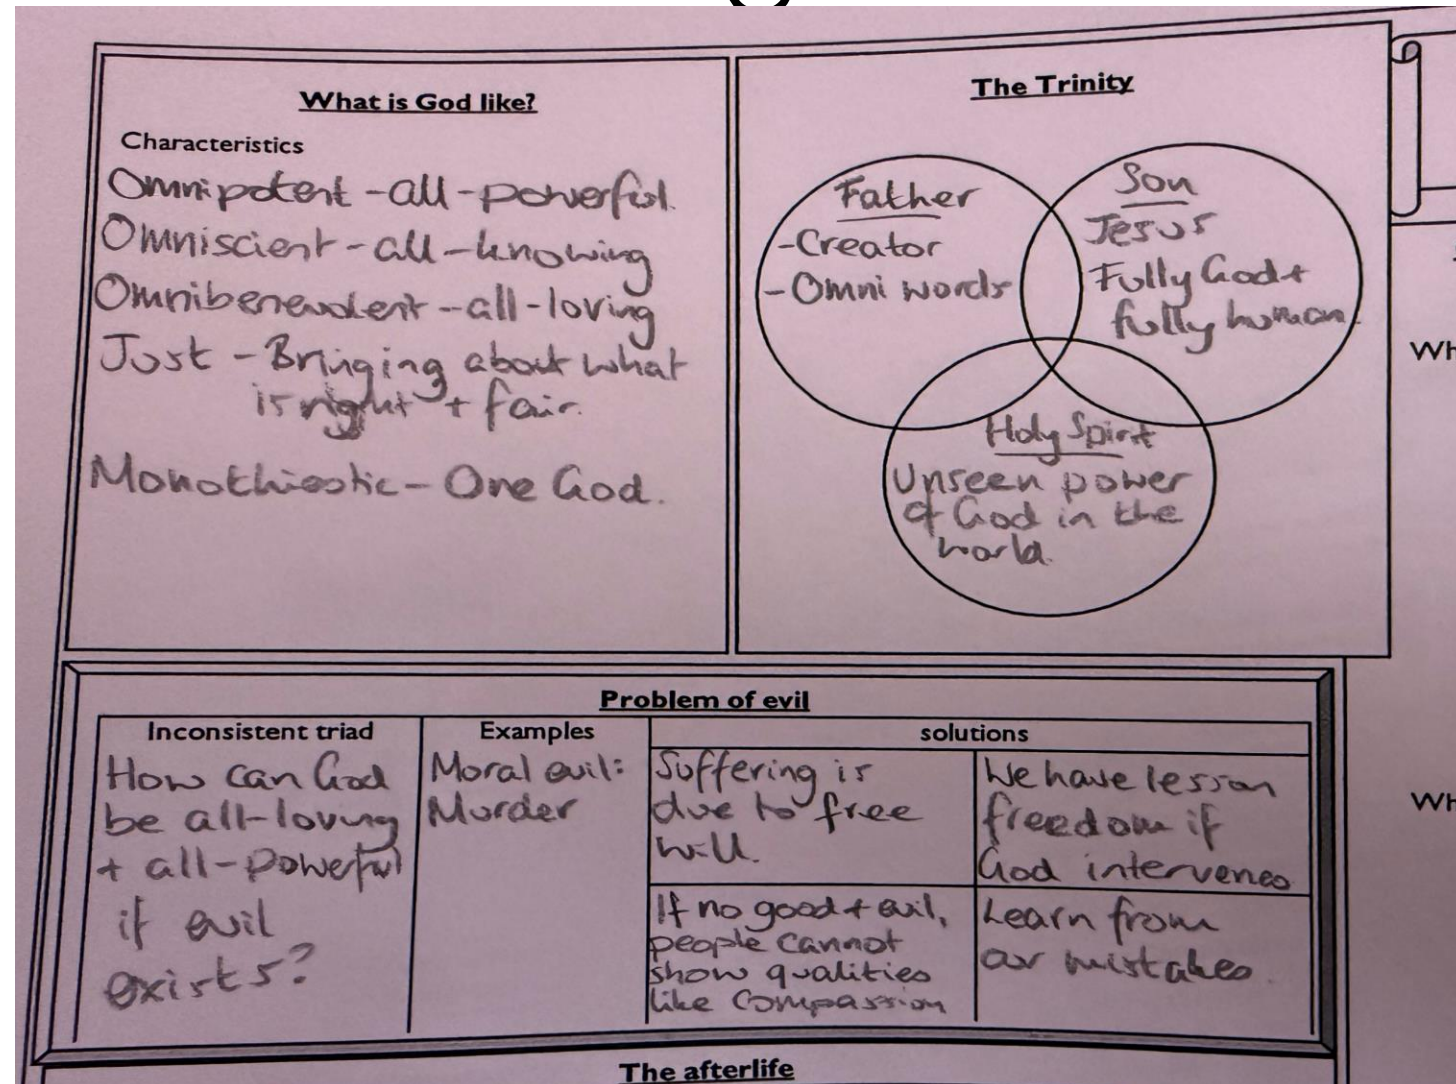 What is God like?
Characteristics
Omnipotent - all-powerful.
Omniscient - all-knowing
Omnibenevolent - all-loving
Just - Bringing about what
is right + fair.
Monothiestic - One God.
The Trinity
Father
- Creator
- Omni words
Son
Jesus
Fully God +
fully human.
Holy Spirit
Unseen power
of God in the
world.
Problem of evil
Inconsistent triad
How can God
be all-loving
+ all-powerful
if evil
exists?
Examples
Moral evil:
Murder
solutions
Suffering is
due to free
will.
We have lesson
freedom if
God intervenes
If no good + evil,
people cannot
show qualities
like compassion
Learn from
our mistakes.
The afterlife